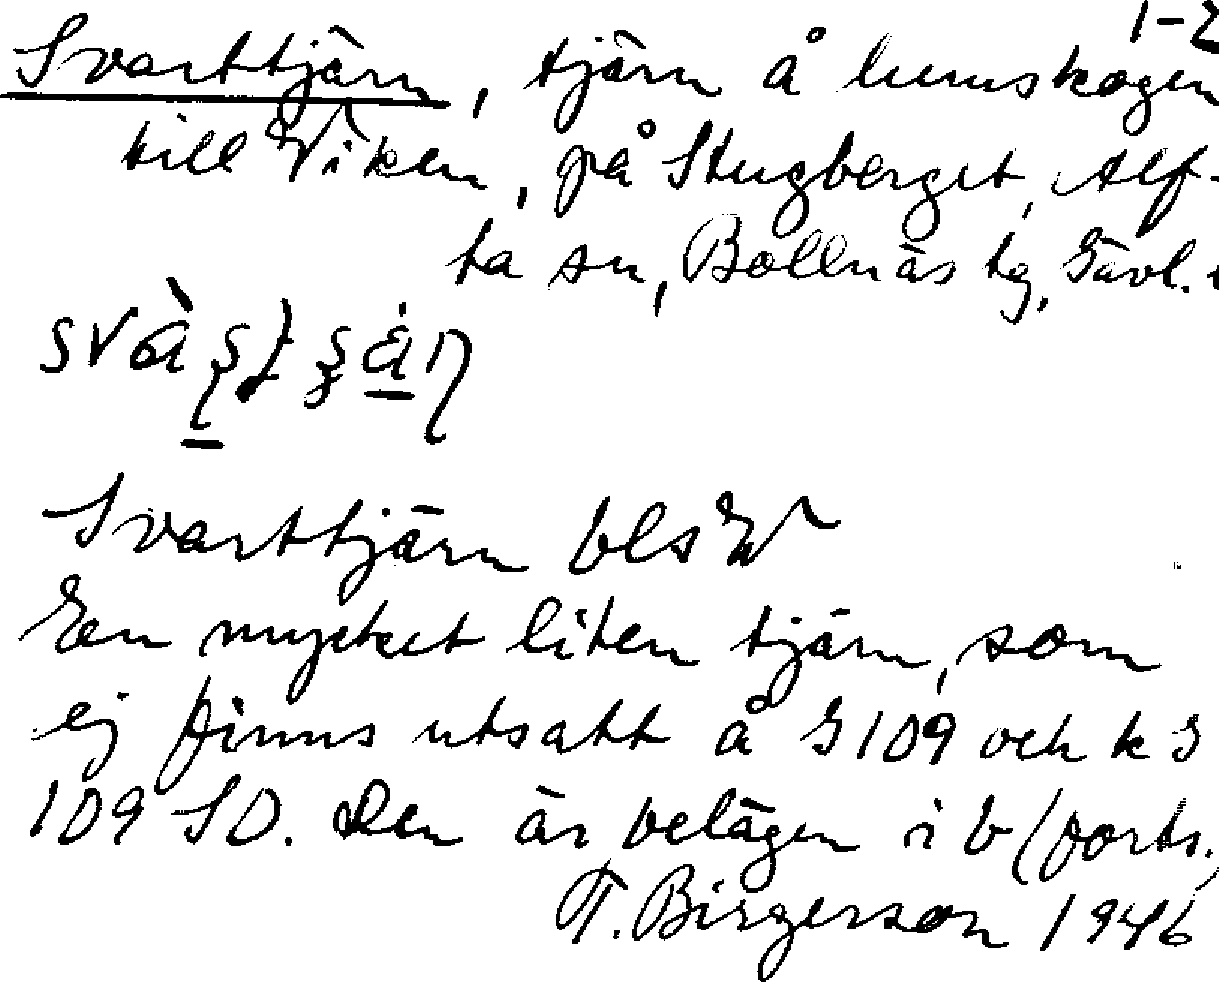 1-2
Svarttjärn, tjärn å hemskogen
till Viken, på Stugberget, Alf-
ta sn, Bollnäs tg, Gävl.
Svarttjärn bls
En mycket liten tjärn, som
ej finns utsatt å G109 och k G
109 SO. Den är belägen i b (forts.)
T. Birgerson 1946